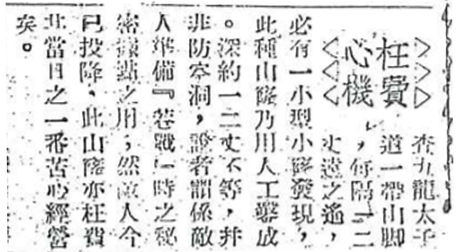 枉費
心機
查九龍太子
道一帶山脚
，每隔一二
丈遠之逾，
必有一小型小隧發現，
此種山隧乃用人工鑿成
。深約一二丈不等，并
非防空洞，證者謂係敵
人準備『巷戰』時之秘
密據點之用；然敵人今
已投降，此山隧亦枉費
其當日之一番苦心經營
矣。